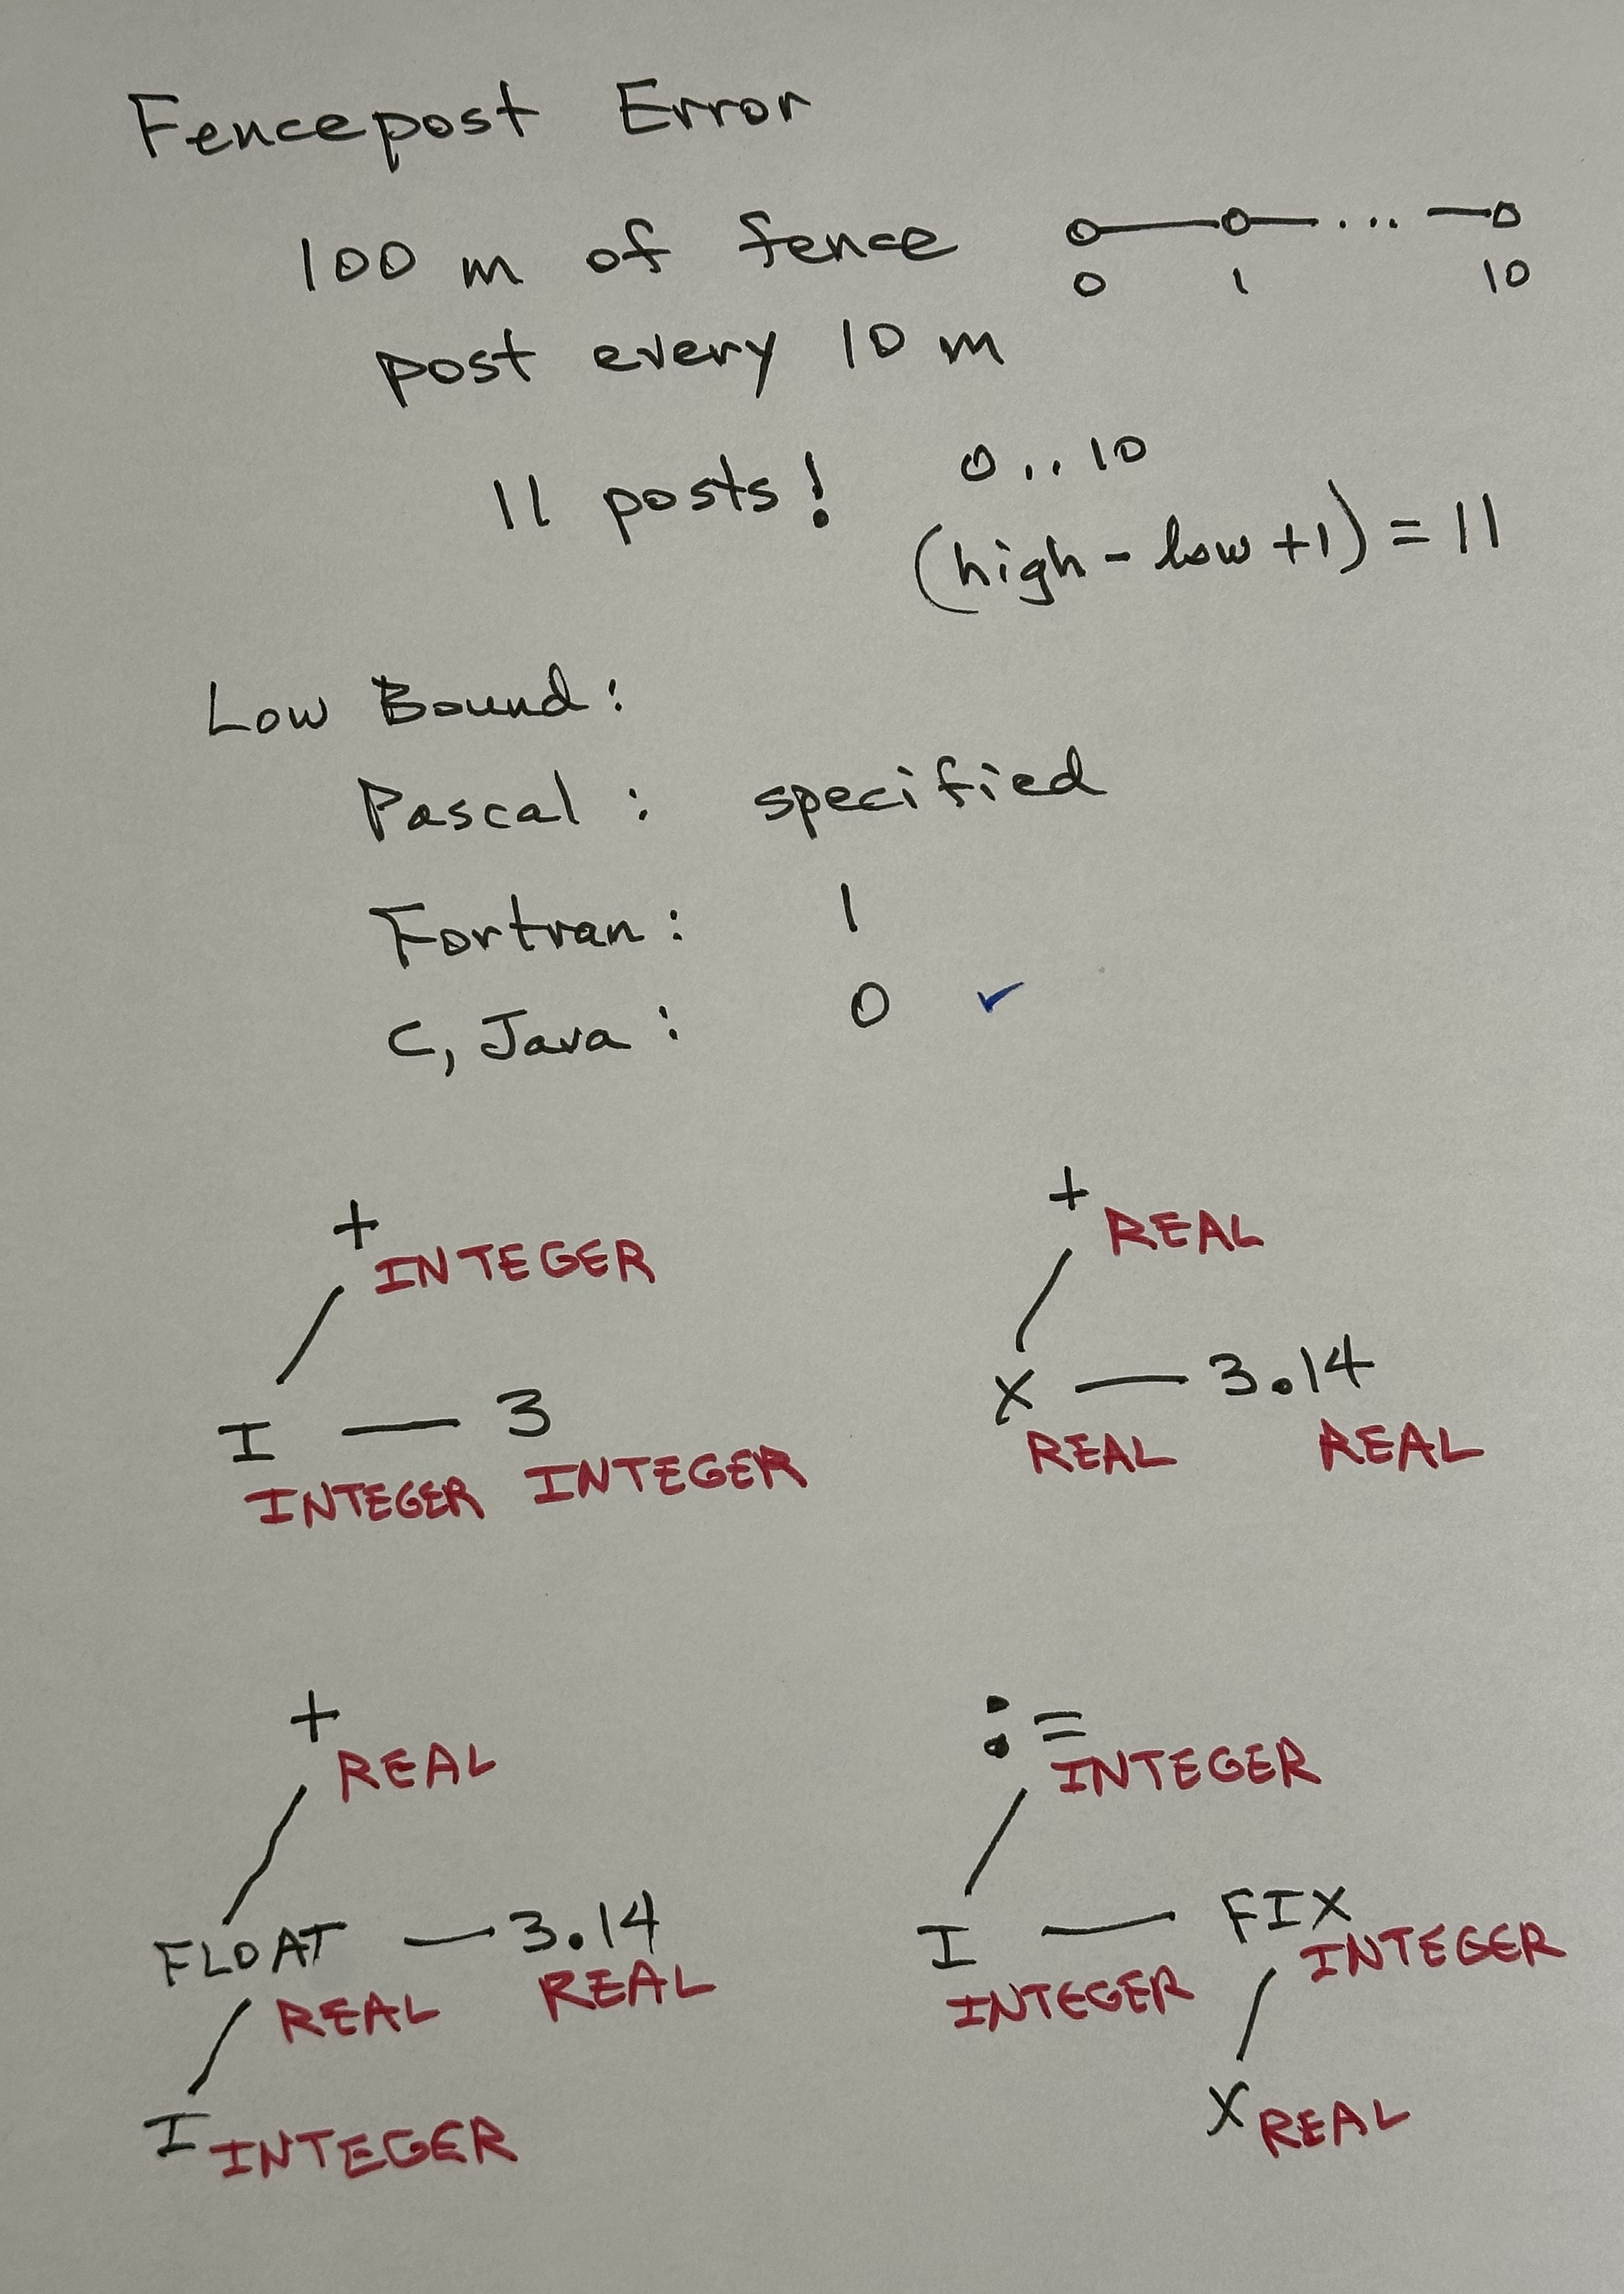 Fencepost Error
100 m of fence
0 1 ... 10
post every 10 m
11 posts! 0..10
(high - low + 1) = 11
Low Bound:
Pascal: specified
Fortran: 1
C, Java: 0 ✓
+ INTEGER
I — 3
INTEGER INTEGER
+ REAL
X — 3.14
REAL REAL
+ REAL
FLOAT — 3.14
REAL REAL
I INTEGER
:= INTEGER
I — FIX
INTEGER INTEGER
X REAL